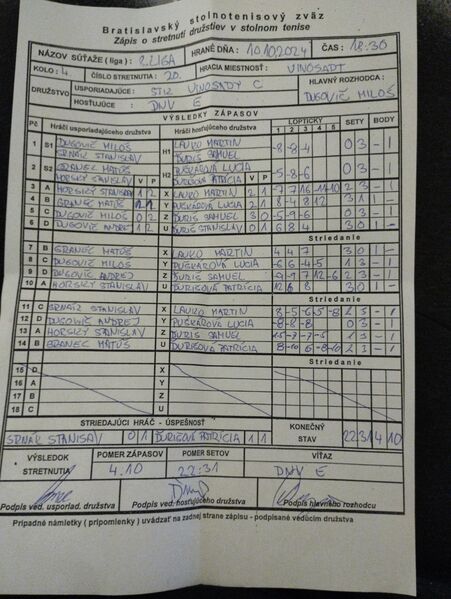 Bratislavský stolnotenisový zväz
Zápis o stretnutí družstiev v stolnom tenise
NÁZOV SÚŤAŽE ( liga ) : 2. LIGA HRANÉ DŇA : 10.10.2024 ČAS : 18:30
KOLO : 4. ČÍSLO STRETNUTIA : 20. HRACIA MIESTNOSŤ : VINOSADY HLAVNÝ ROZHODCA :
DRUŽSTVO USPORIADAJÚCE : STK VINOSADY C DUGOVIČ MILOŠ
HOSŤUJÚCE : DNV E
VÝSLEDKY ZÁPASOV
Pč Hráči usporiadajúceho družstva Hráči hosťujúceho družstva LOPTIČKY SETY BODY
1 2 3 4 5
1 S1 DUGOVIČ MILOŠ H1 LAUKO MARTIN -8 -8 -4 0 3 - 1
SRNÁK STANISLAV ĎURIŠ SAMUEL
2 S2 GRANEC MATÚŠ H2 PUŠKÁROVÁ LUCIA -5 -8 -6 0 3 - 1
HORSKÝ STANISLAV V P ĎURIŠOVÁ PATRÍCIA V P
3 A HORSKÝ STANISLAV 1 2 X LAUKO MARTIN 2 1 2 3 - 1
4 B GRANEC MATÚŠ Y PUŠKÁROVÁ LUCIA 2 1
5 C DUGOVIČ MILOŠ 0 2 Z ĎURIŠ SAMUEL 3 0 -5 -9 -6 0 3 - 1
6 D DUGOVIČ ANDREJ 1 2 U ĎURIŠ STANISLAV 0 1 6 8 4 3 0 1 -
Striedanie
7 B GRANEC MATÚŠ X LAUKO MARTIN 4 4 7 3 0 1 -
8 C DUGOVIČ MILOŠ Y PUŠKÁROVÁ LUCIA 1 3 - 1
9 D DUGOVIČ ANDREJ Z ĎURIŠ SAMUEL 2 3 - 1
10 A HORSKÝ STANISLAV U ĎURIŠOVÁ PATRÍCIA 12 6 8 3 0 1 -
Striedanie
11 C SRNÁK STANISLAV X LAUKO MARTIN 2 3 - 1
12 D DUGOVIČ ANDREJ Y PUŠKÁROVÁ LUCIA -8 -8 -8 0 3 - 1
13 A HORSKÝ STANISLAV Z ĎURIŠ SAMUEL 1 3 - 1
14 B GRANEC MATÚŠ U ĎURIŠOVÁ PATRÍCIA 2 3 - 1
Striedanie
15 D X
16 A Y
17 B Z
18 C U
STRIEDAJÚCI HRÁČ - ÚSPEŠNOSŤ KONEČNÝ
SRNÁK STANISLAV 0 1 ĎURIŠOVÁ PATRÍCIA 1 1 STAV 22 31 4 10
VÝSLEDOK POMER ZÁPASOV POMER SETOV VÍŤAZ
STRETNUTIA 4:10 22:31 DNV E
Podpis ved. usporiad. družstva Podpis ved. hosťujúceho družstva Podpis hlavného rozhodcu
Prípadné námietky ( pripomienky ) uvádzať na zadnej strane zápisu - podpísané vedúcim družstva